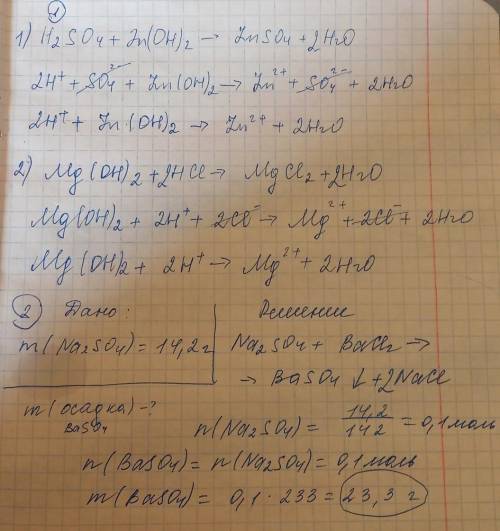 1
1) H₂SO₄ + Zn(OH)₂ → ZnSO₄ + 2H₂O
2H⁺ + SO₄²⁻ + Zn(OH)₂ → Zn²⁺ + SO₄²⁻ + 2H₂O
2H⁺ + Zn(OH)₂ → Zn²⁺ + 2H₂O
2) Mg(OH)₂ + 2HCl → MgCl₂ + 2H₂O
Mg(OH)₂ + 2H⁺ + 2Cl⁻ → Mg²⁺ + 2Cl⁻ + 2H₂O
Mg(OH)₂ + 2H⁺ → Mg²⁺ + 2H₂O
2 Дано:
m(Na₂SO₄) = 14,2 г
m(осадка) - ?
BaSO₄
Решение
Na₂SO₄ + BaCl₂ →
→ BaSO₄ ↓ + 2NaCl
n(Na₂SO₄) = 14,2/142 = 0,1 моль
n(BaSO₄) = n(Na₂SO₄) = 0,1 моль
m(BaSO₄) = 0,1 · 233 = 23,3 г